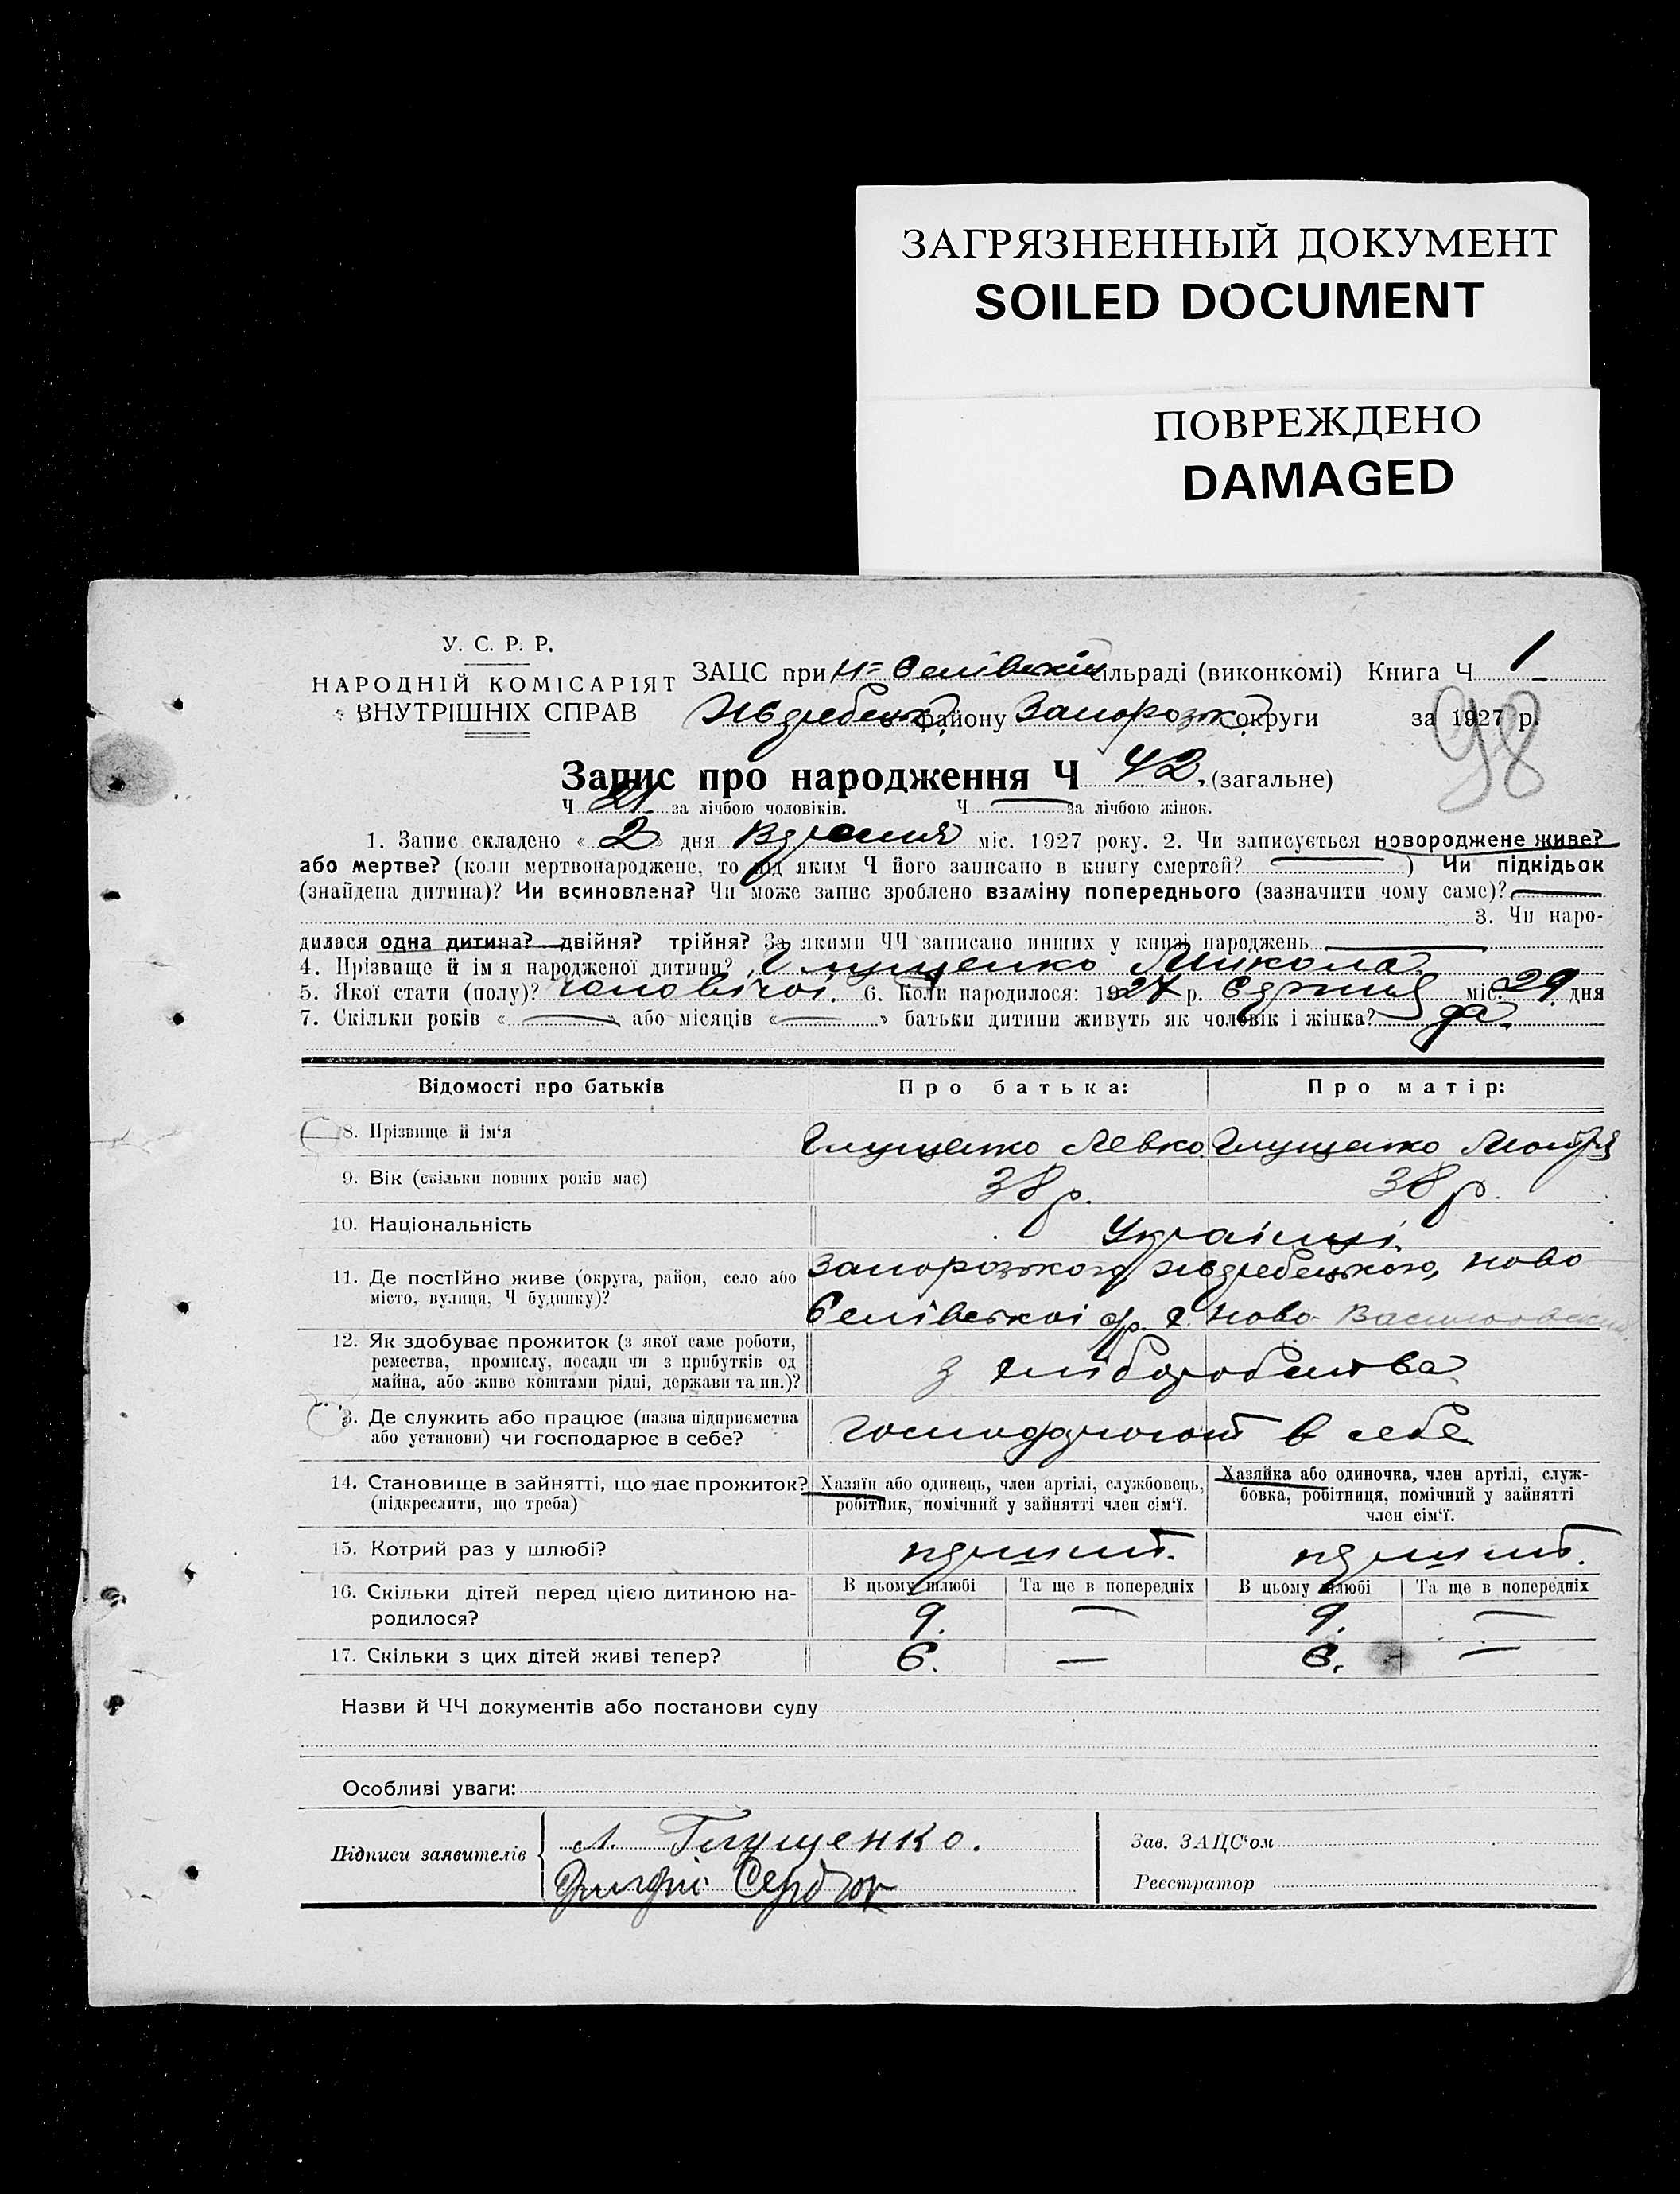 ЗАГРЯЗНЕННЫЙ ДОКУМЕНТ
SOILED DOCUMENT
ПОВРЕЖДЕНО
DAMAGED
У. С. Р. Р.
НАРОДНІЙ КОМІСАРІЯТ
ВНУТРІШНІХ СПРАВ
ЗАЦС при Н-Селівській сільраді (виконкомі) Книга Ч 1
району Запорозьк. округи за 1927 р.
98
Запис про народження Ч 42. (загальне)
Ч 21 за лічбою чоловіків. Ч — за лічбою жінок.
1. Запис складено « 2 » дня міс. 1927 року. 2. Чи записується новороджене живе?
або мертве? (коли мертвонароджене, то під яким Ч його записано в книгу смертей? — ) Чи підкідьок
(знайдена дитина)? Чи всиновлена? Чи може запис зроблено взаміну попереднього (зазначити чому саме)? —
3. Чи наро-
дилася одна дитина? двійня? трійня? За якими ЧЧ записано инших у книзі народжень —
4. Прізвище й ім я народженої дитини? Глущенко Микола.
5. Якої стати (полу)? чоловічої. 6. Коли народилося: 1927 р. міс. 29 дня
7. Скільки років « — » або місяців « — » батьки дитини живуть як чоловік і жінка? да.
Відомості про батьків Про батька: Про матір:
8. Прізвище й ім‘я Глущенко Левко Глущенко Мотря
9. Вік (скільки повних років має) 38 р. 38 р.
10. Національність Українці.
11. Де постійно живе (округа, район, село або
місто, вулиця, Ч будинку)?
Запорозької, ново
Селівської с/р. с. Ново-
12. Як здобуває прожиток (з якої саме роботи,
ремества, промислу, посади чи з прибутків од
майна, або живе коштами рідні, держави та ин.)?
з хліборобства
13. Де служить або працює (назва підприємства
або установи) чи господарює в себе?
господарюют в себе
14. Становище в зайнятті, що дає прожиток?
(підкреслити, що треба)
Хазяїн або одинець, член артілі, службовець,
робітник, помічний у зайнятті член сім‘ї.
Хазяйка або одиночка, член артілі, служ-
бовка, робітниця, помічний у зайнятті
член сім‘ї.
15. Котрий раз у шлюбі?
16. Скільки дітей перед цією дитиною на-
родилося?
В цьому шлюбі Та ще в попередніх В цьому шлюбі Та ще в попередніх
9. — 9. —
17. Скільки з цих дітей живі тепер? 6. — 6. —
Назви й ЧЧ документів або постанови суду
Особливі уваги:
Підписи заявителів
Л. Глущенко.
Сердюк
Зав. ЗАЦС‘ом
Реєстратор